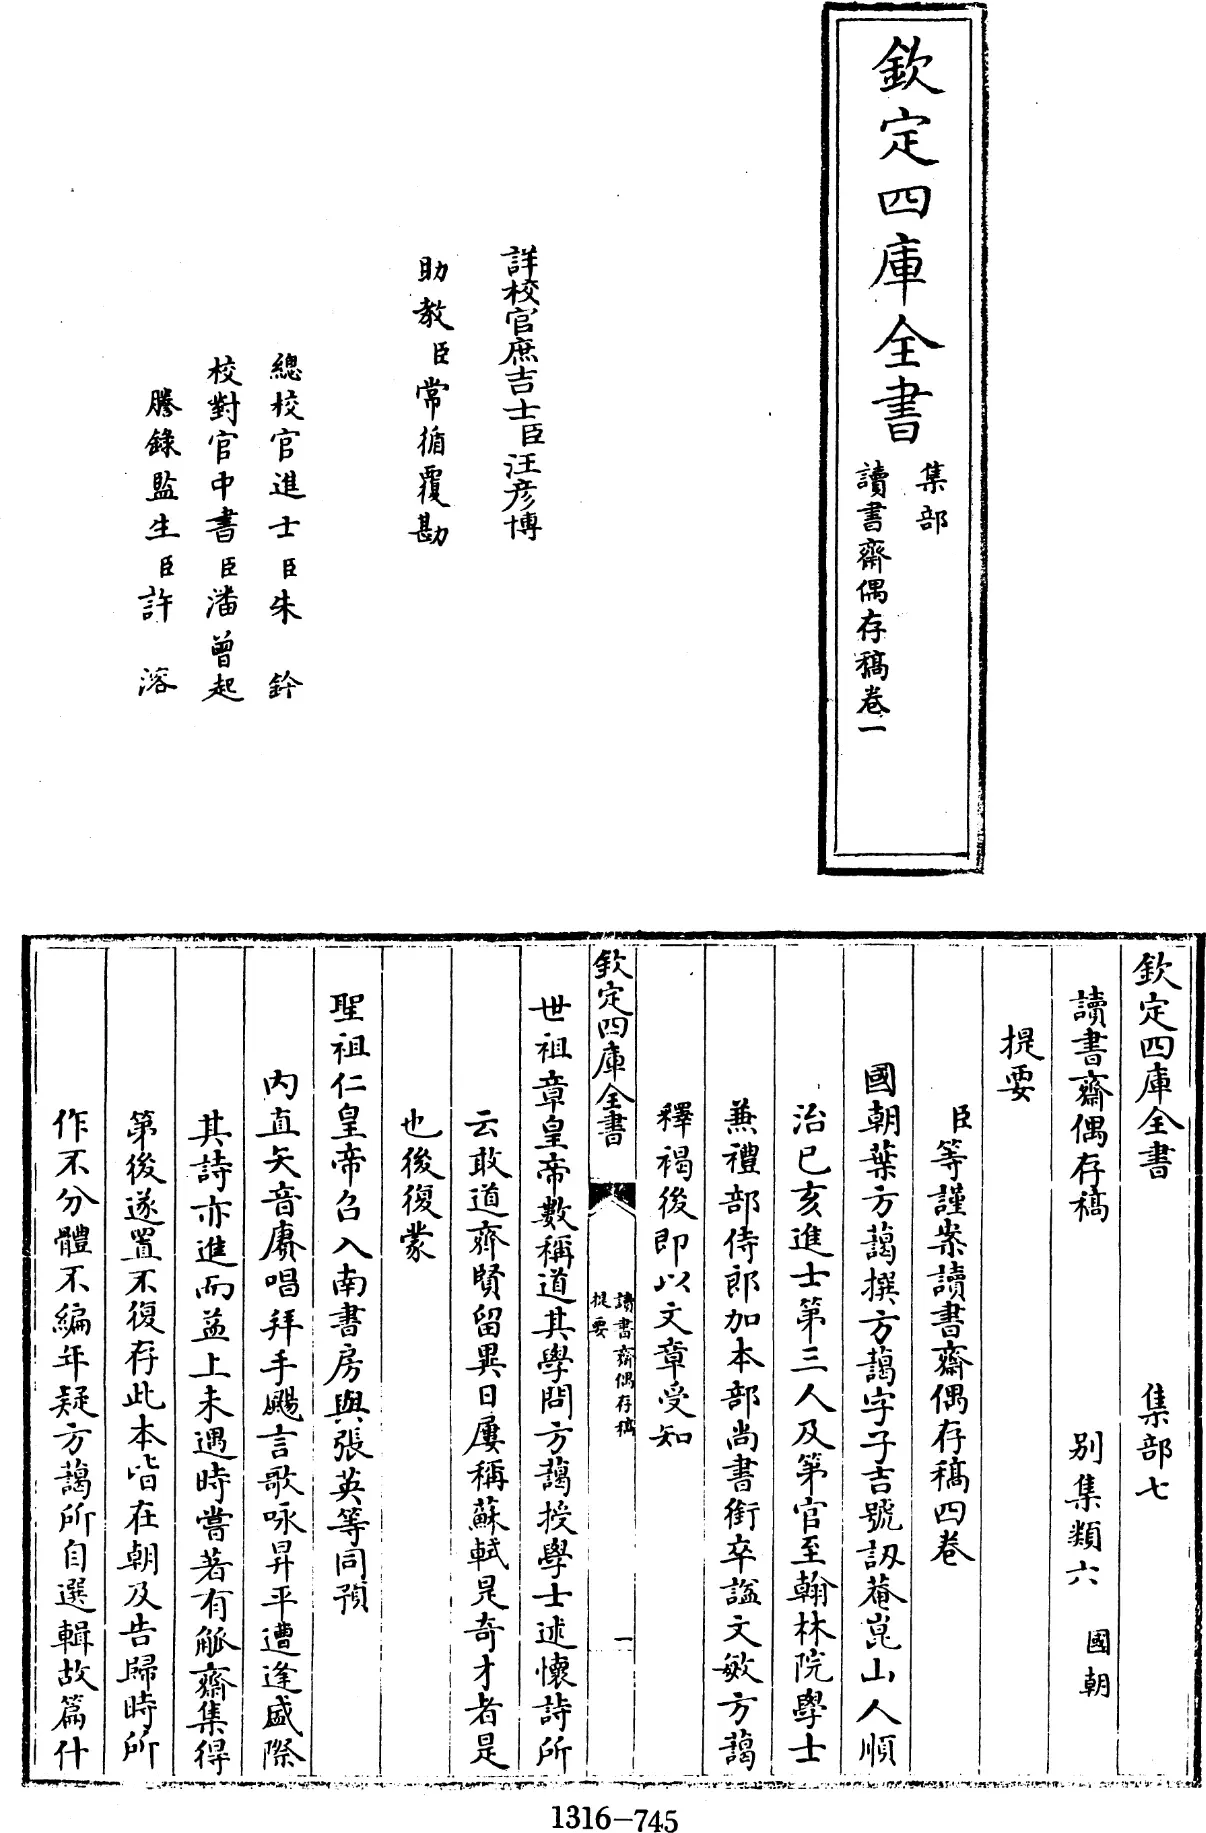 欽定四庫全書
集部
讀書齋偶存稿卷一
詳校官庶吉士臣汪彥博
助教臣常循覆勘
總校官進士臣朱鈐
校對官中書臣潘曾起
謄錄監生臣許溶
欽定四庫全書 集部七
讀書齋偶存稿 別集類六 國朝
提要
臣等謹案讀書齋偶存稿四卷
國朝葉方藹撰方藹字子吉號訒菴崑山人順
治己亥進士第三人及第官至翰林院學士
兼禮部侍郎加本部尚書銜卒諡文敏方藹
釋褐後即以文章受知
欽定四庫全書
讀書齋偶存稿
提要
一
世祖章皇帝數稱道其學問方藹授學士述懷詩所
云敢道齊賢留異日屢稱蘇軾是奇才者是
也後復蒙
聖祖仁皇帝召入南書房與張英等同預
內直矢音賡唱拜手颺言歌咏昇平遭逢盛際
其詩亦進而益上未遇時嘗著有觚齋集得
第後遂置不復存此本皆在朝及告歸時所
作不分體不編年疑方藹所自選輯故篇什
1316-745